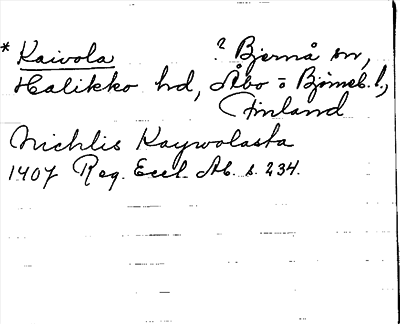 * Kaivola ? Bjernå sn,
Halikko hd, Åbo o Björneb. l.,
Finland
Michlis Kaywolasta
1407 Reg. Eccl. Ab. s. 234.